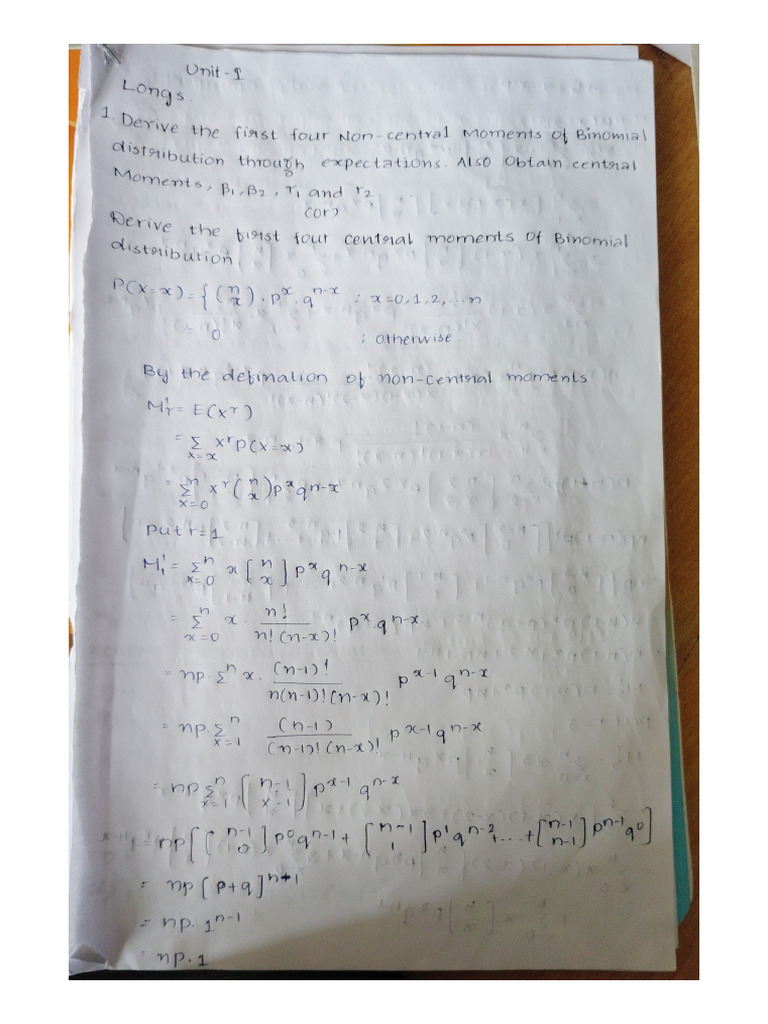 Unit-1
Longs.
1. Derive the first four Non-central Moments of Binomial
distribution through expectations. Also Obtain central
Moments, β1, β2, r1 and r2.
(or)
Derive the first four central moments of Binomial
distribution
P(X=x) = { (n x) . p^x . q^{n-x} ; x=0,1,2,...n
= 0 ; otherwise
By the defination of non-central moments
M'_r = E(x^r)
= Σ_{x=x} x^r P(X=x)
= Σ_{x=0}^n x^r (n x) p^x q^{n-x}
Put r=1
M'_1 = Σ_{x=0}^n x [n x] p^x q^{n-x}
= Σ_{x=0}^n x . n! / n!(n-x)! p^x q^{n-x}
= np. Σ^n x. (n-1)! / n(n-1)!(n-x)! p^{x-1} q^{n-x}
= np. Σ_{x=1}^n (n-1) / (n-1)!(n-x)! p^{x-1} q^{n-x}
= np Σ_{x=1}^n [n-1 x-1] p^{x-1} q^{n-x}
= np[[n-1 0] p^0 q^{n-1} + [n-1 1] p^1 q^{n-2} + ... + [n-1 n-1] p^{n-1} q^0]
= np [p+q]^{n-1}
= np. 1^{n-1}
= np. 1